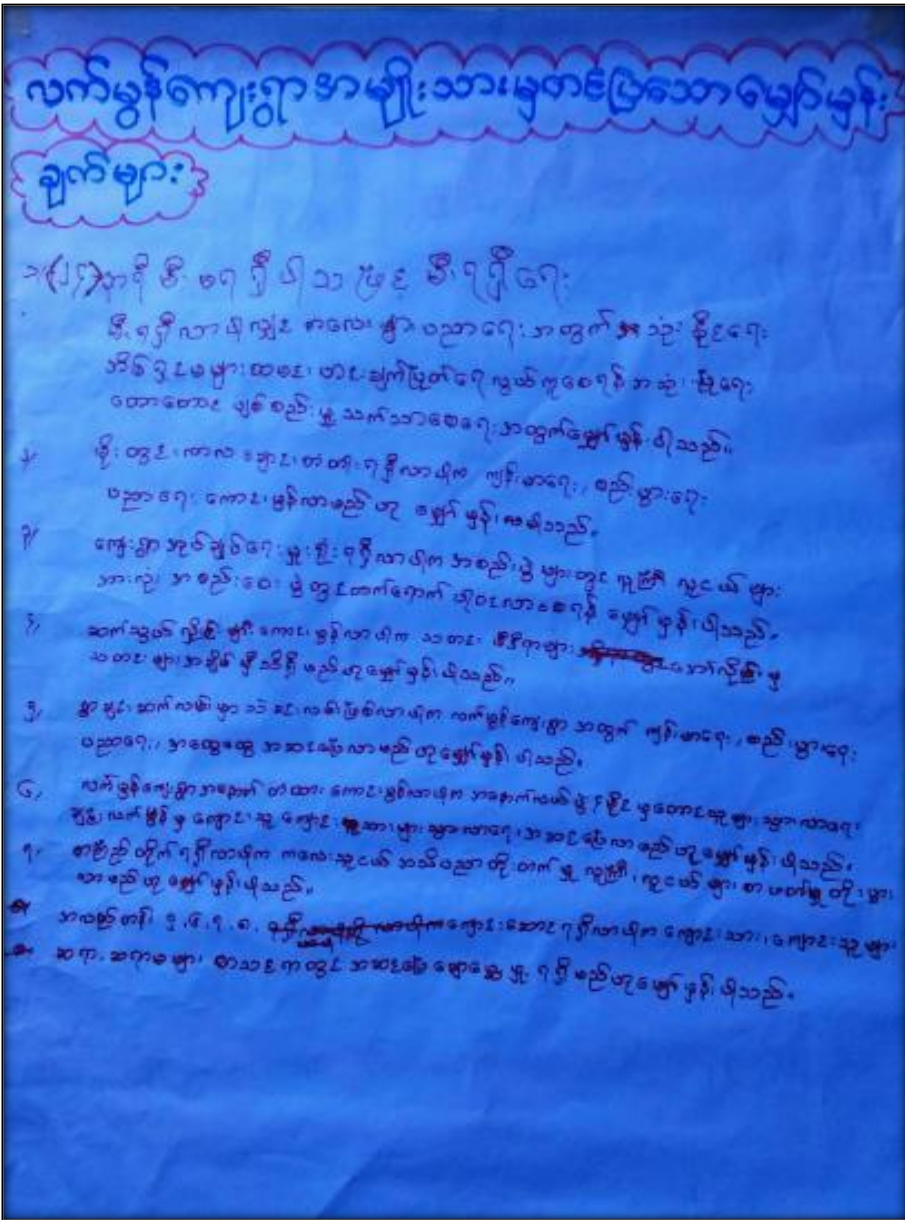 လက်မွန်ကျေးရွာအမျိုးသားမှတင်ပြသောမျှော်မှန်း
ချက်များ
၁။ (၂၄)နာရီ မီး မရရှိပါသဖြင့် မီးရရှိရေး
မီးရရှိလာပါလျှင် ကလေးများပညာရေးအတွက် အသုံးနိုင်ရေး
အိမ်ရှင်မများထမင်း၊ ဟင်းချက်ပြုတ်ရေလွယ်ကူစေရန် အသုံးပြုရေး
တောတောင် ပျစ်စည်းမှု သက်သာစေရေးအတွက်မျှော်မှန်းပါသည်။
၂။ မိုးတွင်းကာလ ချောင်းတံတားရရှိလာပါက ကျန်းမာရေး, စည်းပွားရေး
ပညာရေး ကောင်းမွန်လာမည်ဟု မျှော်မှန်းပါသည်။
၃။ ကျေးရွာအုပ်ချုပ်ရေးမှူးရုံးရရှိလာပါက အစည်းအဝေးပွဲများတွင် လူကြီး လူငယ်များ
အားလုံး အစည်းဝေးပွဲတွင်တက်ရောက် ပါဝင်လာစေရန် မျှော်မှန်းပါသည်။
၄။ ဆက်သွယ်လိုင်းများကောင်းမွန်လာပါက သတင်း မီဒီယာများ အော်လိုင်းမှ
သတင်းများအချိန်မှီသိရှိမည်ဟုမျှော်မှန်းပါသည်။
၅။ ရွာချင်းဆက်လမ်းမှာ လမ်းဖြစ်လာပါက လက်မွန်ကျေးရွာ အတွက် ကျန်းမာရေး, စည်းပွားရေး
ပညာရေး, အထွေထွေ အဆင်ပြေလာမည်ဟုမျှော်မှန်းပါသည်။
၆။ လက်မွန်ကျေးရွာအနောက် တံထားကောင်းမွန်လာပါက အနောက်လယ် မှတောင်သူများသွားလာရေး
လက်မွန်မှ ကျောင်းသူ ကျောင်းသားများသွားလာရေးအဆင်ပြေလာမည်ဟုမျှော်မှန်းပါသည်။
၇။ စာကြည့်တိုက်ရရှိလာပါက ကလေးသူငယ် အသိပညာတိုးတက်မှု လူကြီး, လူငယ်များ စာဖတ်မှုတိုးပွား
လာမည်ဟုမျှော်မှန်းပါသည်။
အလည်တန်း ၅,၆,၇,၈, ကျောင်းဆောင်ရရှိလာပါက ကျောင်းသား, ကျောင်းသူများ
ဆရာ, ဆရာမများ စာသင်ရာတွင် အဆင်ပြေချောမွေ့မှု ရရှိမည်ဟုမျှော်မှန်းပါသည်။